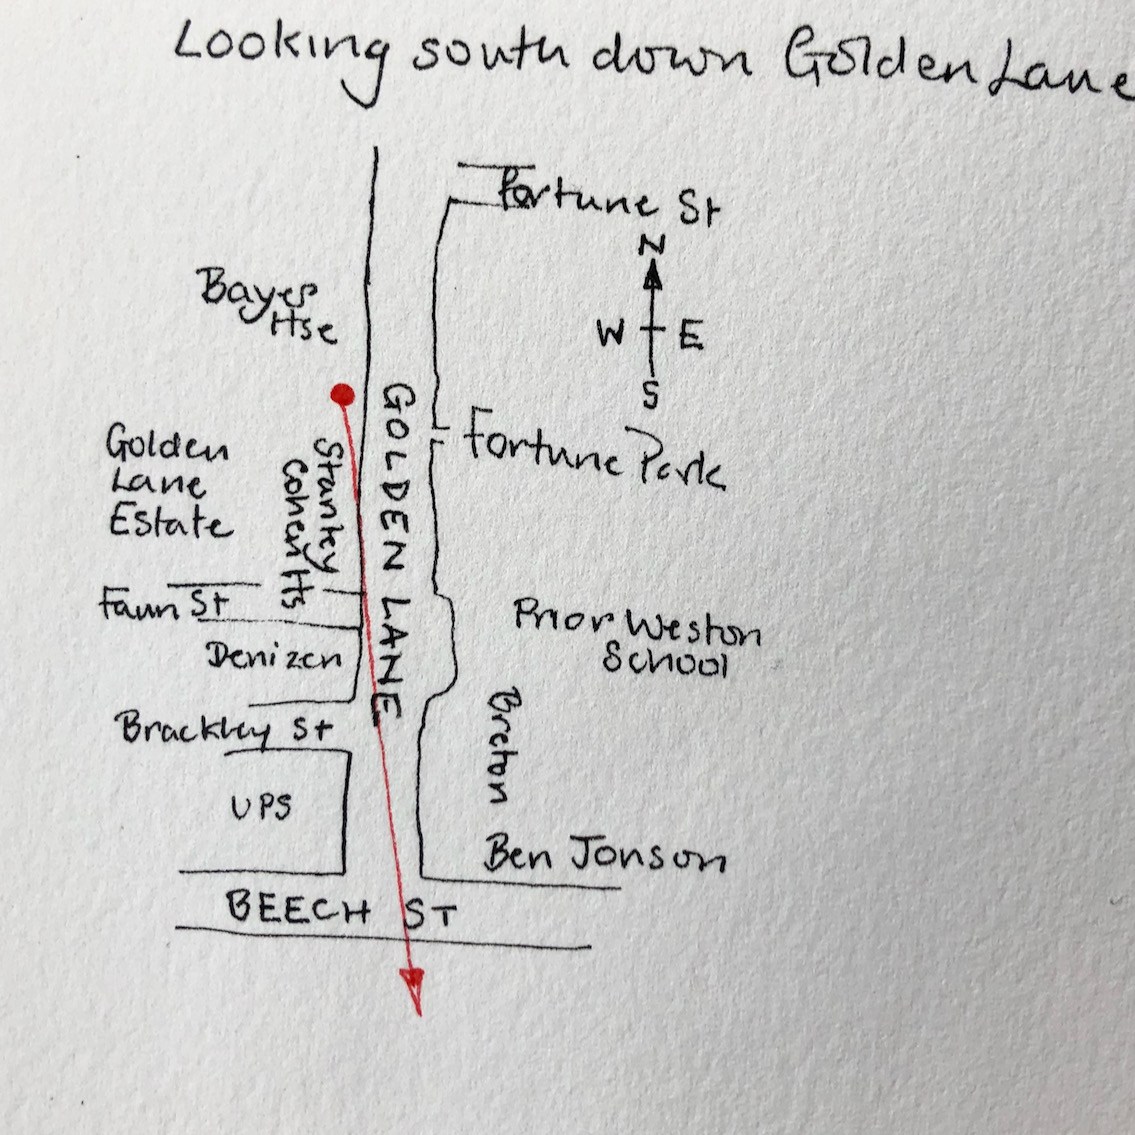 Looking south down Golden Lane
Fortune St
N
W E
S
Bayer
Hse
GOLDEN LANE
Fortune Park
Golden
Lane
Estate
Stanley
Cohen Hs
Fann St
Prior Weston
School
Denizen
Brackley St
Breton
UPS
Ben Jonson
BEECH ST